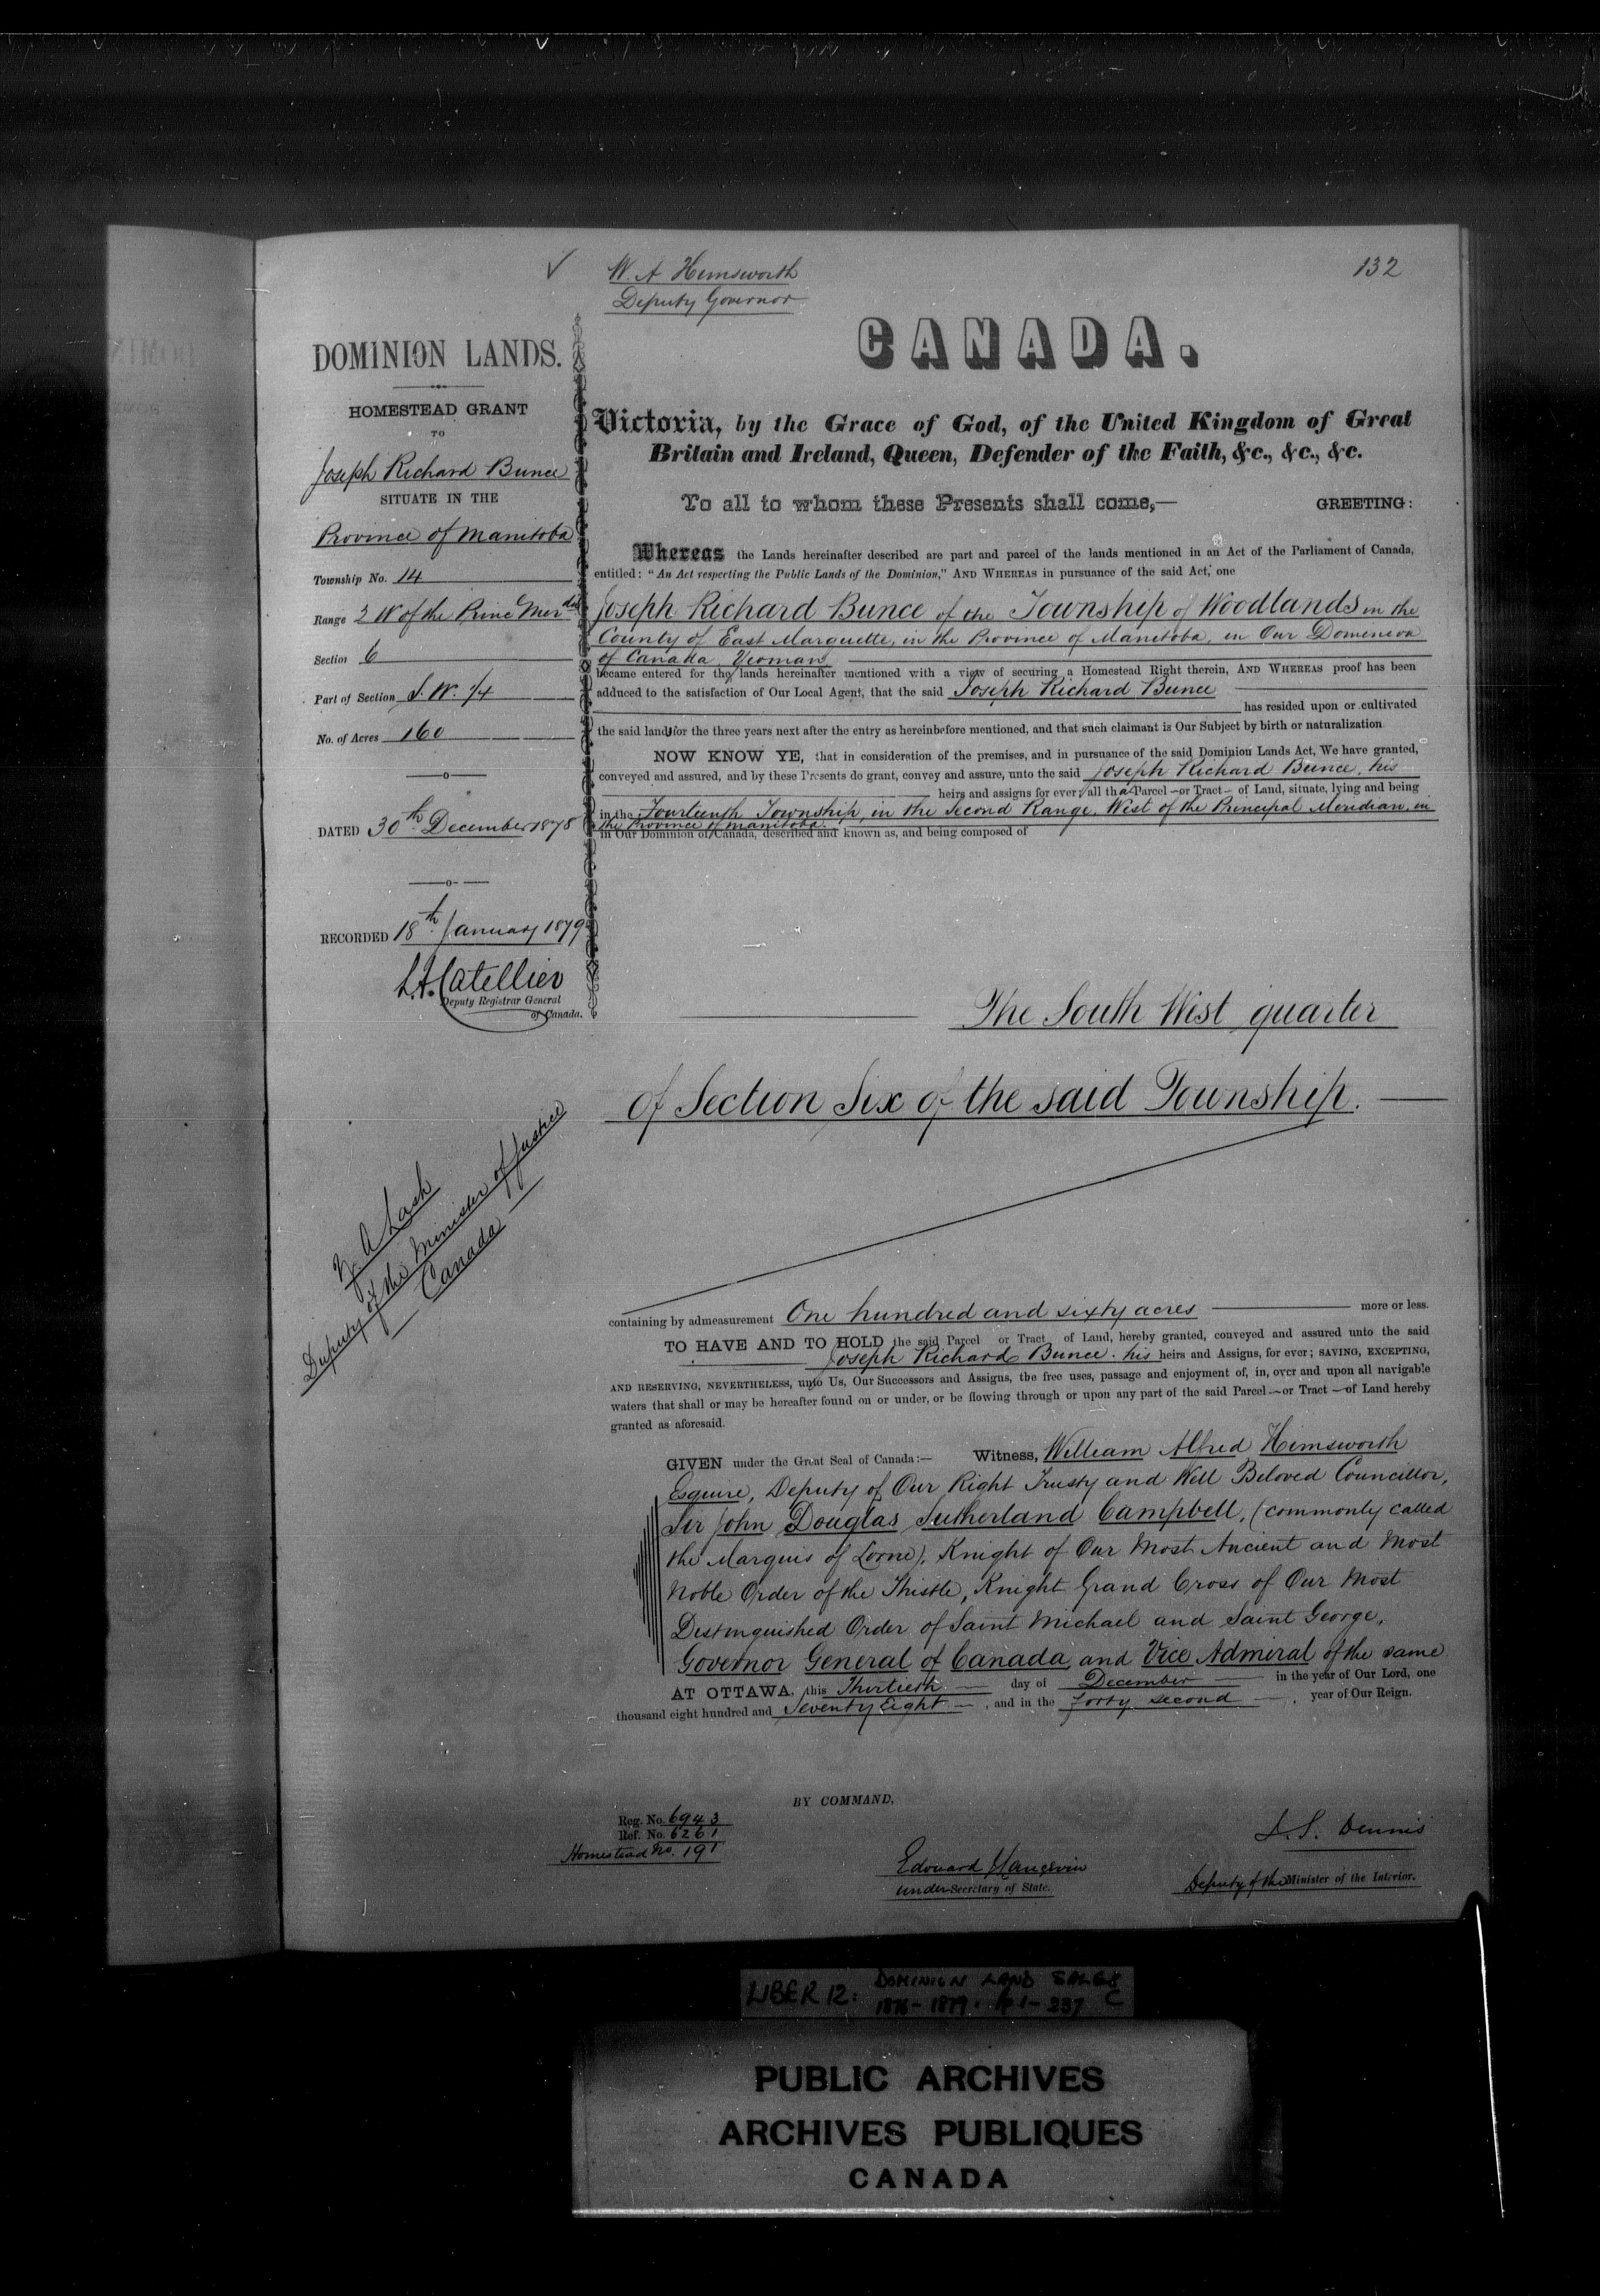 132
W. A Himsworth
Deputy Governor
DOMINION LANDS.
HOMESTEAD GRANT
TO
Joseph Richard Bunce
SITUATE IN THE
Province of Manitoba
Township No. 14
Range 2 W of the Princ Merdn
Section 6
Part of Section S. W. 1/4
No. of Acres 160
DATED 30th December 1878
RECORDED 18th January 1879
L. A. Catellier
Deputy Registrar General
of Canada.
Z A Lash
Deputy of the Minister of Justice
Canada
CANADA.
Victoria, by the Grace of God, of the United Kingdom of Great
Britain and Ireland, Queen, Defender of the Faith, &c., &c., &c.
To all to whom these Presents shall come,— GREETING:
Whereas the Lands hereinafter described are part and parcel of the lands mentioned in an Act of the Parliament of Canada,
entitled: "An Act respecting the Public Lands of the Dominion," AND WHEREAS in pursuance of the said Act, one
Joseph Richard Bunce of the Township of Woodlands in the
County of East Marquette, in the Province of Manitoba, in Our Dominion
of Canada, Yeoman
became entered for the lands hereinafter mentioned with a view of securing a Homestead Right therein, AND WHEREAS proof has been
adduced to the satisfaction of Our Local Agent, that the said Joseph Richard Bunce
has resided upon or cultivated
the said land for the three years next after the entry as hereinbefore mentioned, and that such claimant is Our Subject by birth or naturalization
NOW KNOW YE, that in consideration of the premises, and in pursuance of the said Dominion Lands Act, We have granted,
conveyed and assured, and by these Presents do grant, convey and assure, unto the said Joseph Richard Bunce, his
heirs and assigns for ever, all that Parcel or Tract of Land, situate, lying and being
in the Fourteenth Township, in the Second Range, West of the Principal Meridian, in
the Province of Manitoba
in Our Dominion of Canada, described and known as, and being composed of
The South West quarter
of Section Six of the said Township.
containing by admeasurement One hundred and sixty acres more or less.
TO HAVE AND TO HOLD the said Parcel or Tract of Land, hereby granted, conveyed and assured unto the said
Joseph Richard Bunce. his heirs and Assigns, for ever; SAVING, EXCEPTING,
AND RESERVING, NEVERTHELESS, unto Us, Our Successors and Assigns, the free uses, passage and enjoyment of, in, over and upon all navigable
waters that shall or may be hereafter found on or under, or be flowing through or upon any part of the said Parcel—or Tract—of Land hereby
granted as aforesaid.
GIVEN under the Great Seal of Canada:— Witness, William Alfred Himsworth
Esquire, Deputy of Our Right Trusty and Well Beloved Councillor,
Sir John Douglas Sutherland Campbell, (commonly called
the Marquis of Lorne), Knight of Our Most Ancient and Most
Noble Order of the Thistle, Knight Grand Cross of Our Most
Distinguished Order of Saint Michael and Saint George,
Governor General of Canada, and Vice Admiral of the same
AT OTTAWA, this Thirtieth day of December in the year of Our Lord, one
thousand eight hundred and Seventy Eight, and in the forty second year of Our Reign.
BY COMMAND,
Reg. No. 6943
Ref. No. 6261
Homestead No. 191
Edouard J Langevin
Under Secretary of State.
J. S. Dennis
Deputy of the Minister of the Interior.
LIBER 12: DOMINION LAND SALES
1878-1879. # 1-237 C
PUBLIC ARCHIVES
ARCHIVES PUBLIQUES
CANADA